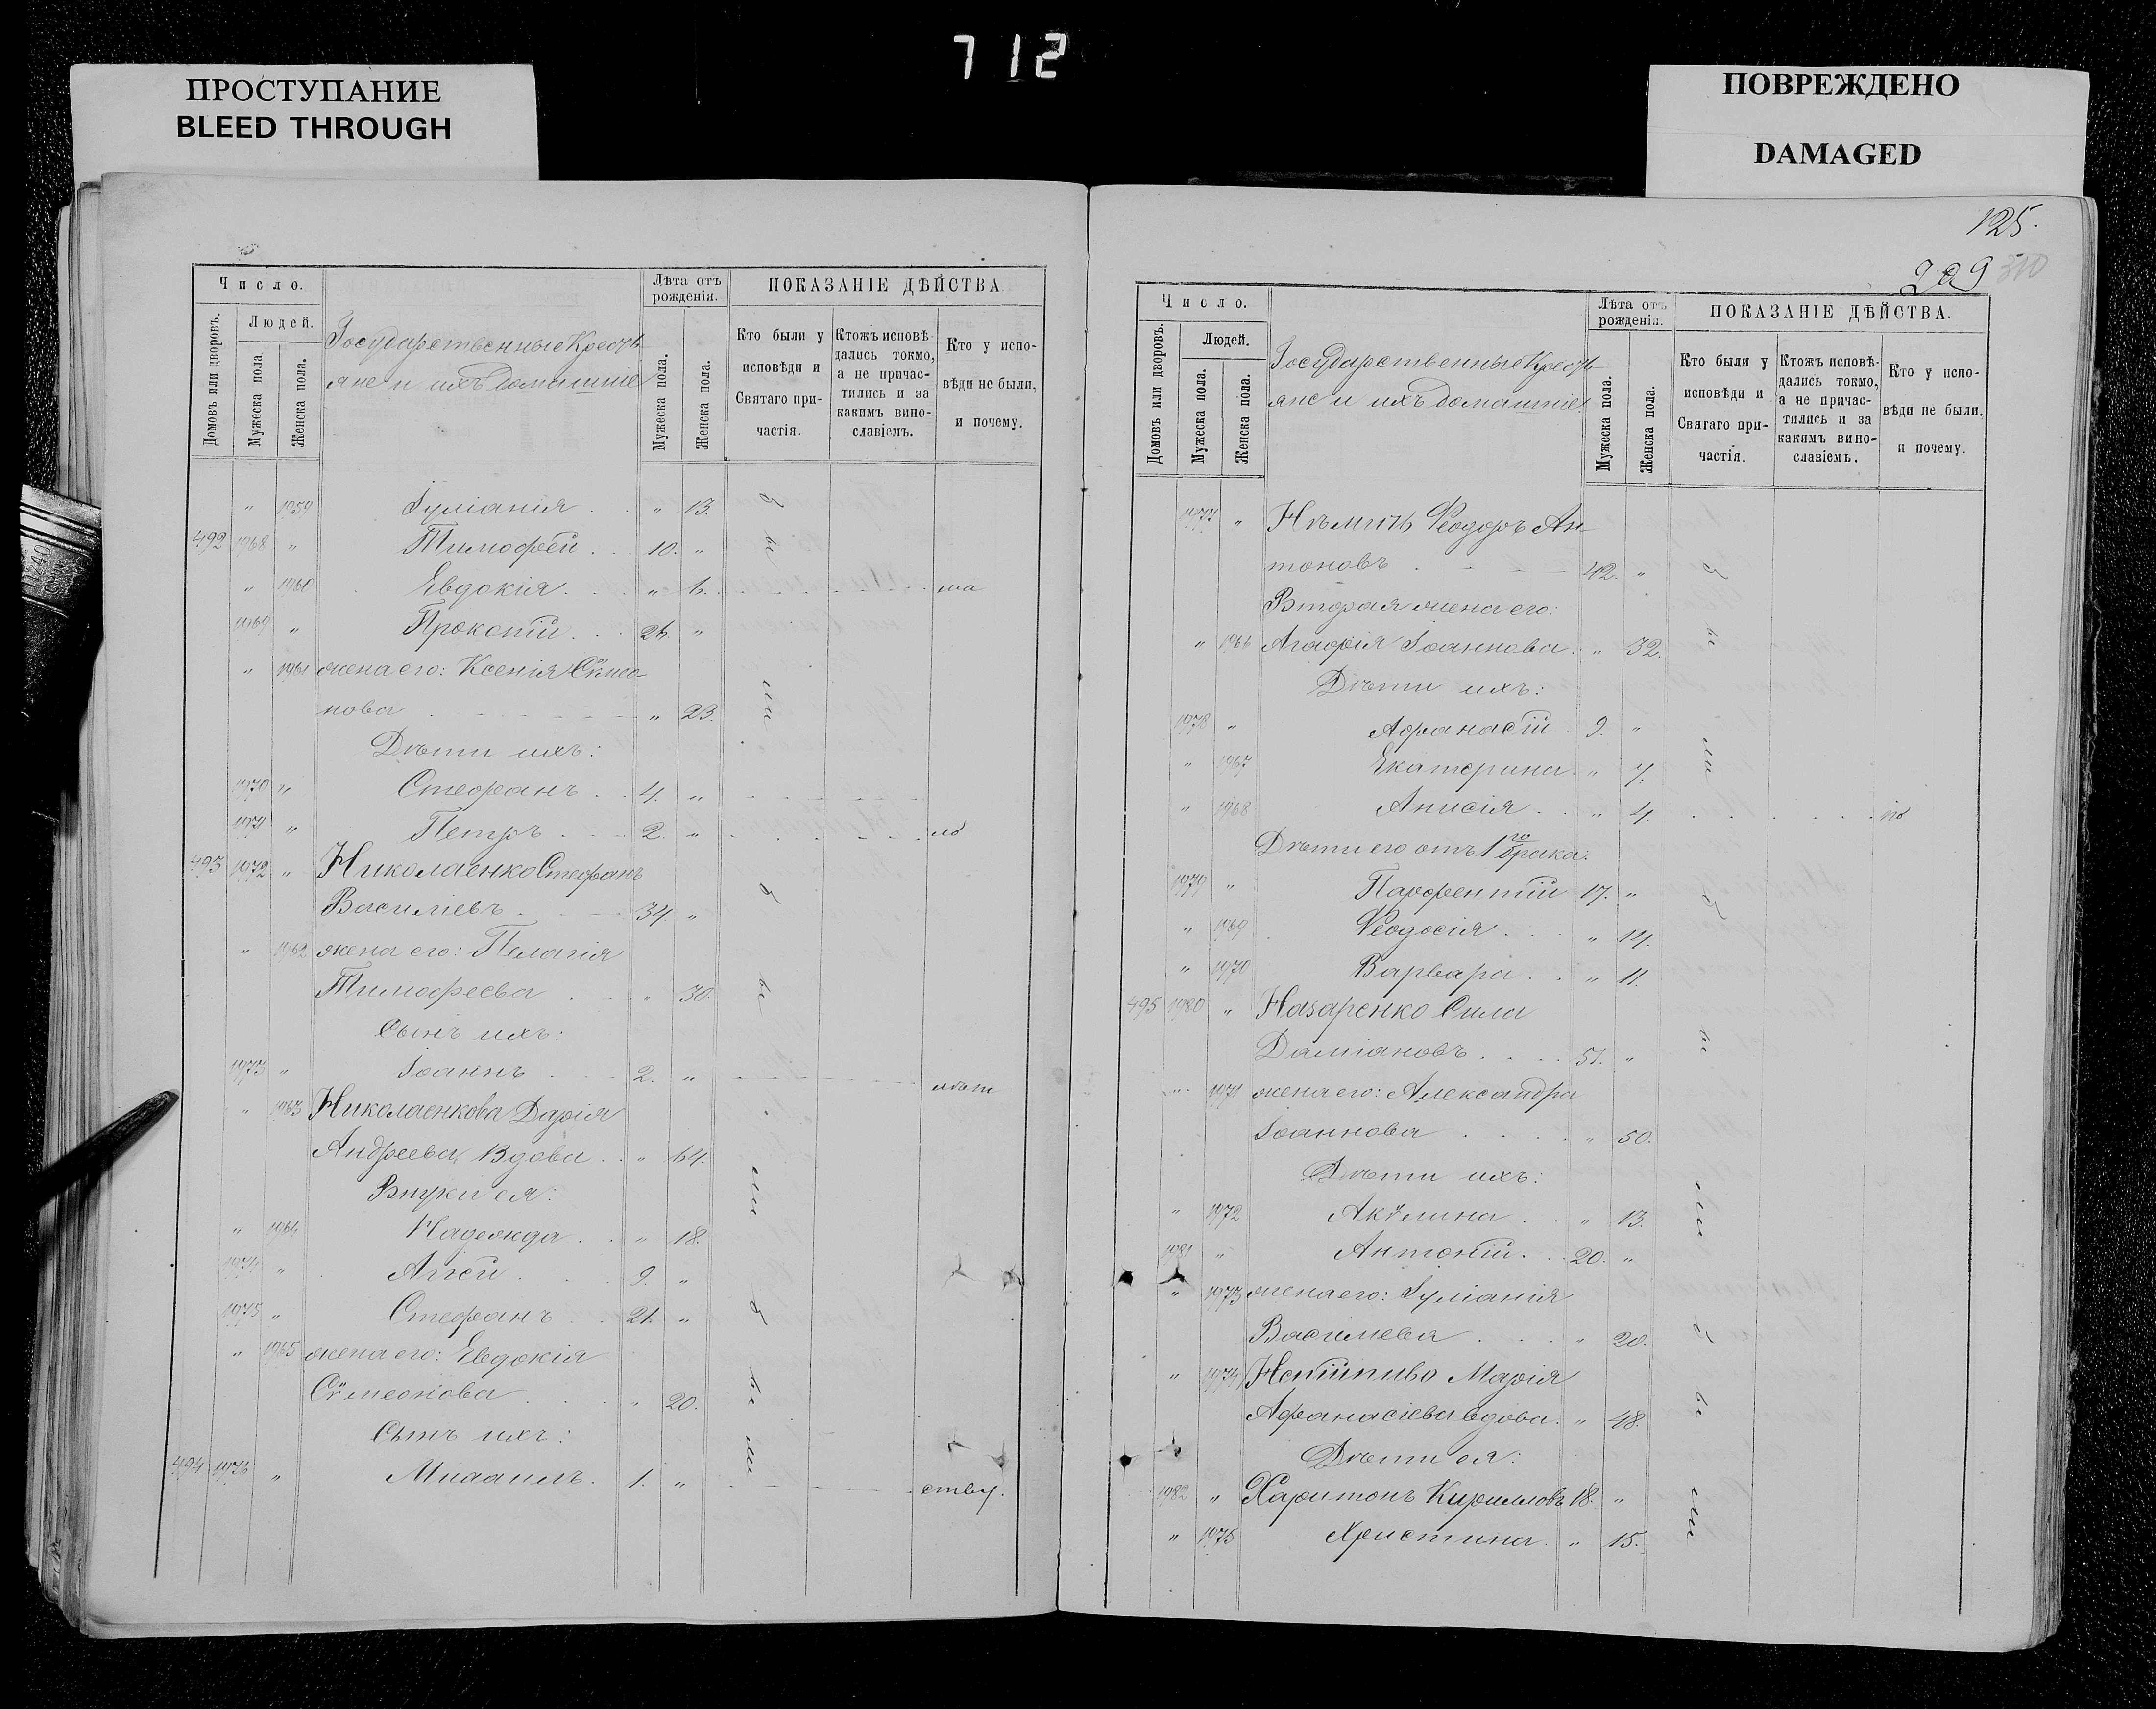 712
ПРОСТУПАНИЕ
BLEED THROUGH
ПОВРЕЖДЕНО
DAMAGED
Число.
Домовъ или дворовъ.
Людей.
Мужеска пола
Женска пола.
Государственные Кресть-
яне и ихъ домашніе
Лѣта отъ
рожденія.
Мужеска пола.
Женска пола.
ПОКАЗАНІЕ ДѢЙСТВА
Кто были у
исповѣди и
Святаго при-
частія.
Ктожъ исповѣ-
дались токмо,
а не причас-
тились и за
какимъ вино-
славіемъ.
Кто у испо-
вѣди не были,
и почему.
" 1959 Іуліанія " 13. б
492 1968 " Тимофей 10. " ы
" 1960 Евдокія " 6. ма
1969 " Прокопій 26. "
" 1961 жена его: Ксенія Сѵмео- ли
нова " 23.
Дѣти ихъ:
1970 " Стефанъ 4. "
1971 " Петръ 2. " ло
493 1972 " Николаенко Стефанъ б
Василіевъ 34. "
" 1962 жена его: Пелагія ы
Тимофеева " 30.
Сынъ ихъ:
1973 " Іоаннъ 2. " лѣт
" 1963 Николаенкова Дарія
Андреева, Вдова " 64. ли
Внуки ея:
" 1964 Надежда " 18.
1974 " Аггей 9. "
1975 " Стефанъ 21. " б
" 1965 жена его: Евдокія ы
Сѵмеонова " 20.
Сынъ ихъ: ли
494 1976 " Михаилъ 1. " ству.
125.
209 310
Число.
Домовъ или дворовъ.
Людей.
Мужеска пола.
Женска пола.
Государственные Кресть-
яне и ихъ домашніе
Лѣта отъ
рожденія.
Мужеска пола.
Женска пола.
ПОКАЗАНІЕ ДѢЙСТВА.
Кто были у
исповѣди и
Святаго при-
частія.
Ктожъ исповѣ-
дались токмо,
а не причас-
тились и за
какимъ вино-
славіемъ.
Кто у испо-
вѣди не были.
и почему.
1977 " Феодоръ Ан-
тоновъ 42. " б
Вторая жена его:
" 1966 Агафія Іоаннова " 32. ы
Дѣти ихъ:
1978 " Афанасій 9. "
" 1967 Екатерина " 7. ли
" 1968 Анисія " 4. по
Дѣти его отъ 1го брака:
1979 " Парфентій 17. " б
" 1969 Феодосія " 14.
" 1970 Варвара " 11.
495 1980 " Назаренко Сила
Даміановъ 51. " ы
" 1971 жена его: Александра
Іоаннова " 50.
Дѣти ихъ:
" 1972 Акѵлина " 13. ли
1981 " Антоній 20. "
" 1973 жена его: Іуліанія
Василіева " 20. б
" 1974 Нетіипиво Марія
Афанасіева вдова. " 48. ы
Дѣти ея:
1982 " Харитонъ Кирилловъ 18. " ли
" 1975 Христина " 15.